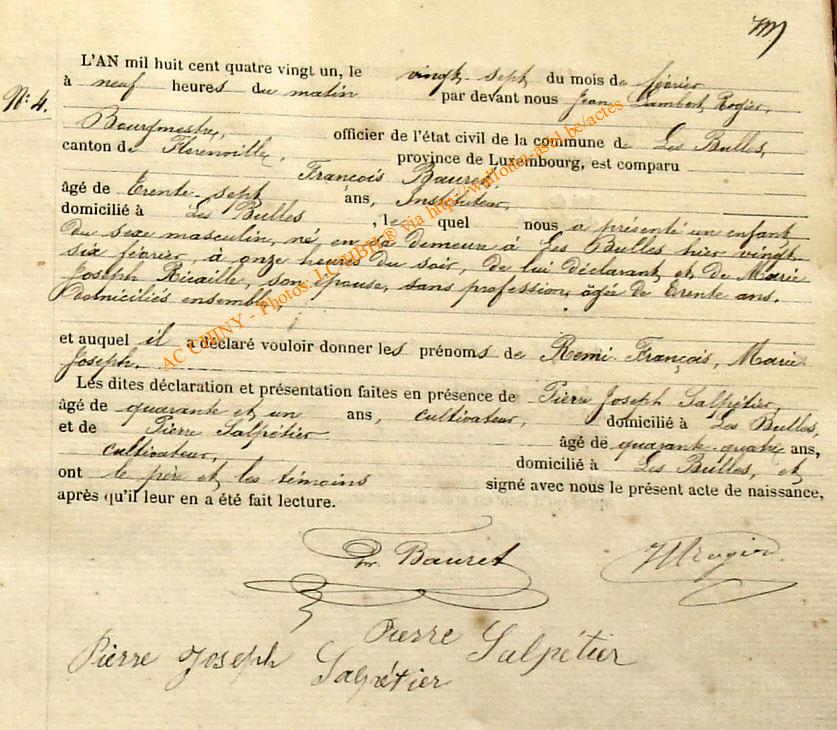 N° 4.
L'AN mil huit cent quatre vingt un, le vingt sept du mois de février
à neuf heures du matin par devant nous Jean Lambert Rogier,
Bourgmestre, officier de l'état civil de la commune de Les Bulles,
canton de Florenville, province de Luxembourg, est comparu
François Bauret
âgé de trente-sept ans, Instituteur,
domicilié à Les Bulles, lequel nous a présenté un enfant
du sexe masculin, né, en sa demeure à Les Bulles hier vingt-
six février, à onze heures du soir, de lui déclarant, et de Marie
Joseph Ricaille, son épouse, sans profession, âgée de trente ans.
Domiciliés ensemble,
et auquel il a déclaré vouloir donner les prénoms de Remi François, Marie
Joseph.
Les dites déclaration et présentation faites en présence de Pierre Joseph Salpétier,
âgé de quarante et un ans, cultivateur, domicilié à Les Bulles,
et de Pierre Salpétier âgé de quarante-quatre ans,
cultivateur, domicilié à Les Bulles, et
ont le père et les témoins signé avec nous le présent acte de naissance,
après qu'il leur en a été fait lecture.
Fr. Bauret
Pierre Salpétier
Pierre Joseph Salpétier
AC CHINY - Photos: LC/HBH® via http://wallonia-asbl.be/actes